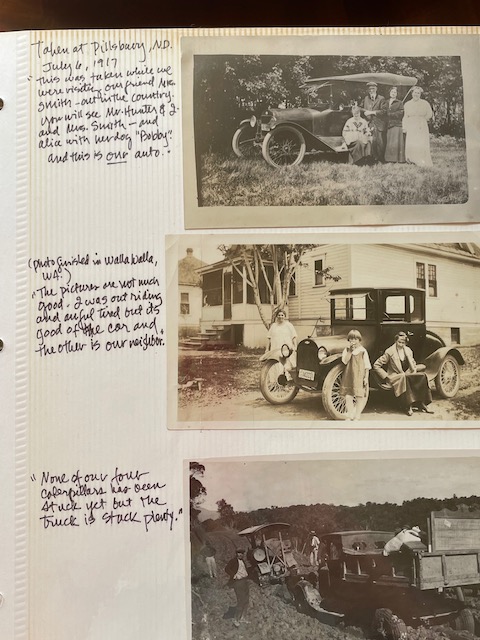 Taken at Pillsbury, N.D.
July 6, 1917
"This was taken while we
were visiting our friend Mrs.
Smith - out in the country.
You will see Mr. Hunter & I
and Mrs. Smith - and
alia with her dog "Bobby"
and this is our auto."
(photo finished in Walla Walla,
WA.)
"The pictures are not much
good. I was out riding
and awful tired but its
good of the car and
the other is our neighbor.
"None of our four
caterpillars has been
stuck yet but the
truck is stuck plenty."